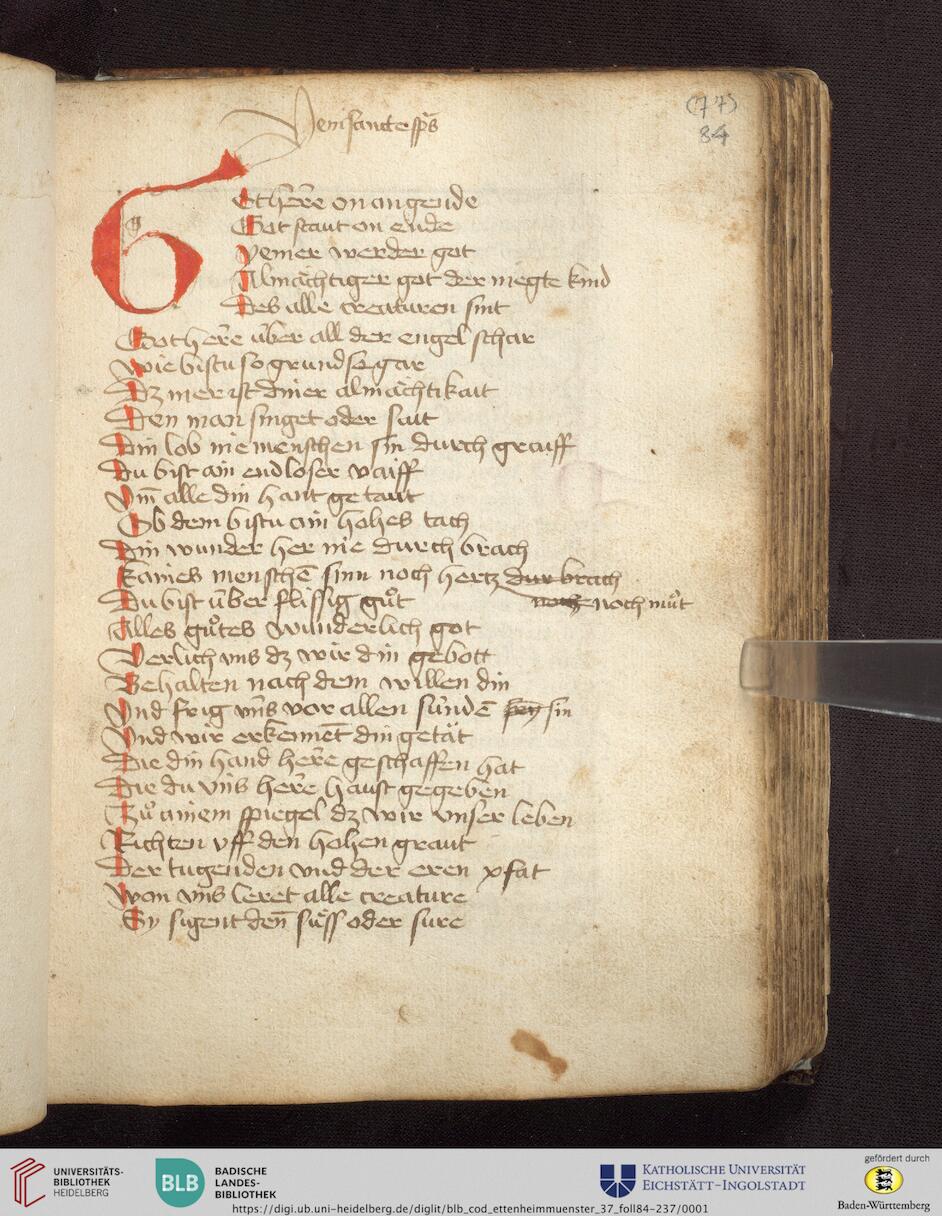 Veni sancte sps
(77)
84
Got here on angende
Got staut on ende
Yemer werder got
Almächtiger got der megte kind
Des alle creaturen sint
Got here über all der engel schar
Wie bistu so grundlos gar
Dz mer ist diner almächtikait
Den man singet oder sait
Din lob nie menschen sin durch graiff
Du bist ain endloser raiff
Vm̄ alle din hant getaut
Ob dem bistu ain hohes tach
Din wunder her nie durch brach
Kaines menschē sinn noch hertz dur brach
Du bist über flissig gůt noch noch můt
Alles gůtes wunderlich got
Verlich vns dz wir din gebott
Behalten nach dem willen din
Vnd frig vns vor allen sündē sin
Vnd wir erkennēt din getät
Die din hand here geschaffen hat
Die du vns here haust gegeben
Zů ainem spiegel dz wir vnser leben
Richten vff den hohen graut
Der tugenden vnd der eren pfat
Won vns leret alle creature
Sy sigent den̄ süss oder sure
UNIVERSITÄTS-
BIBLIOTHEK
HEIDELBERG
BLB
BADISCHE
LANDES-
BIBLIOTHEK
KATHOLISCHE UNIVERSITÄT
EICHSTÄTT-INGOLSTADT
gefördert durch
Baden-Württemberg
https://digi.ub.uni-heidelberg.de/diglit/blb_cod_ettenheimmuenster_37_foll84-237/0001